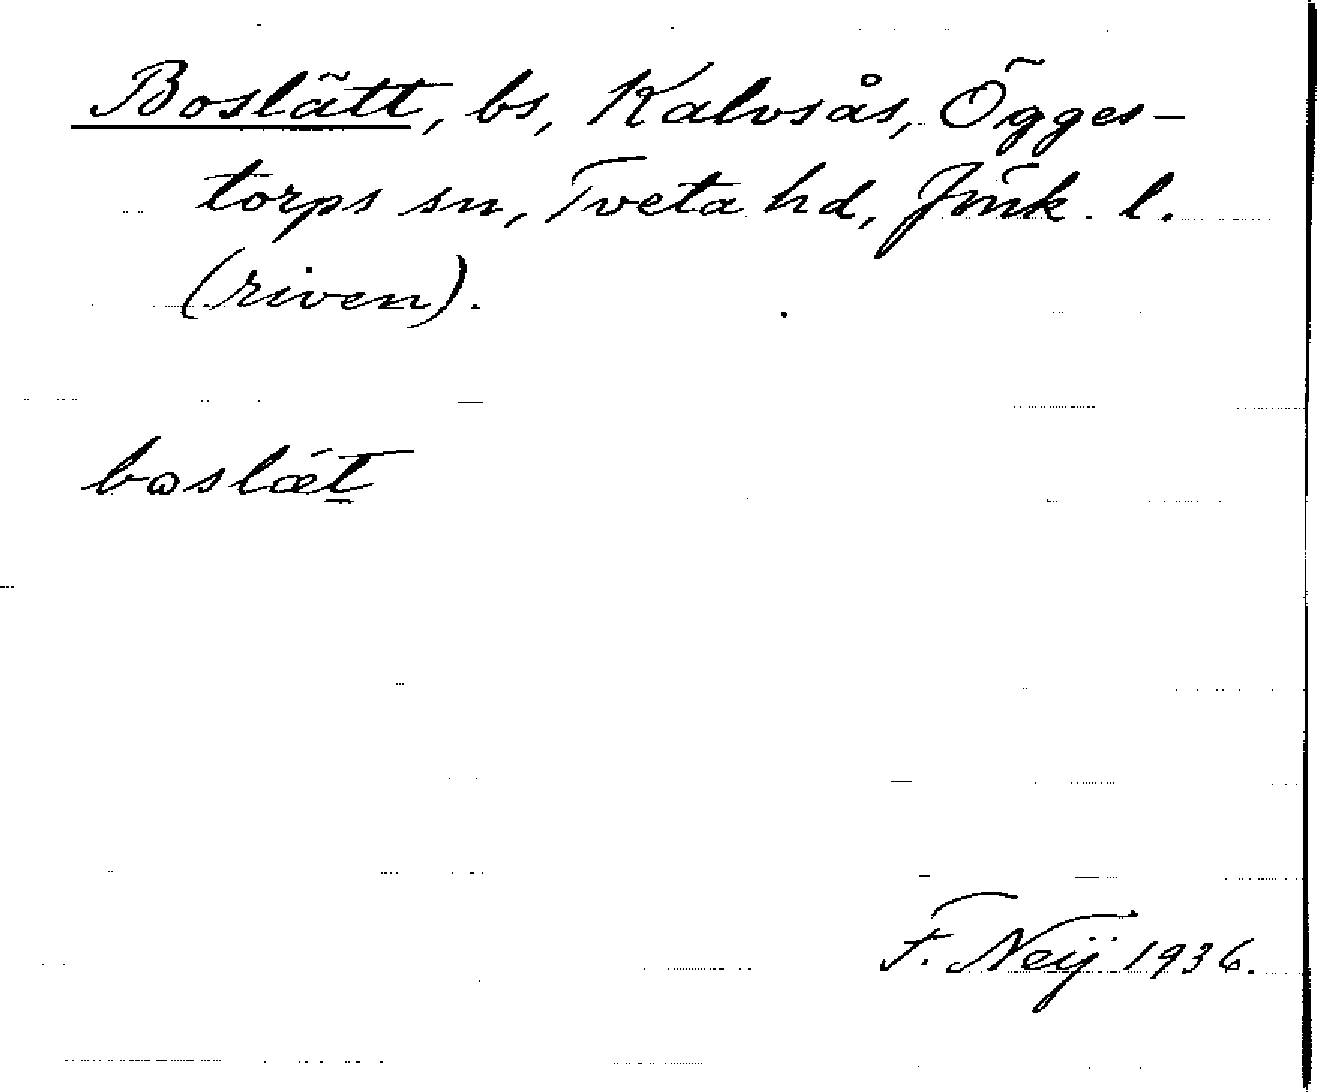 Boslätt, bs, Kalvsås, Ögges-
torps sn, Tveta hd, Jönk. l.
(riven).
boslǽt
F. Neij 1936.